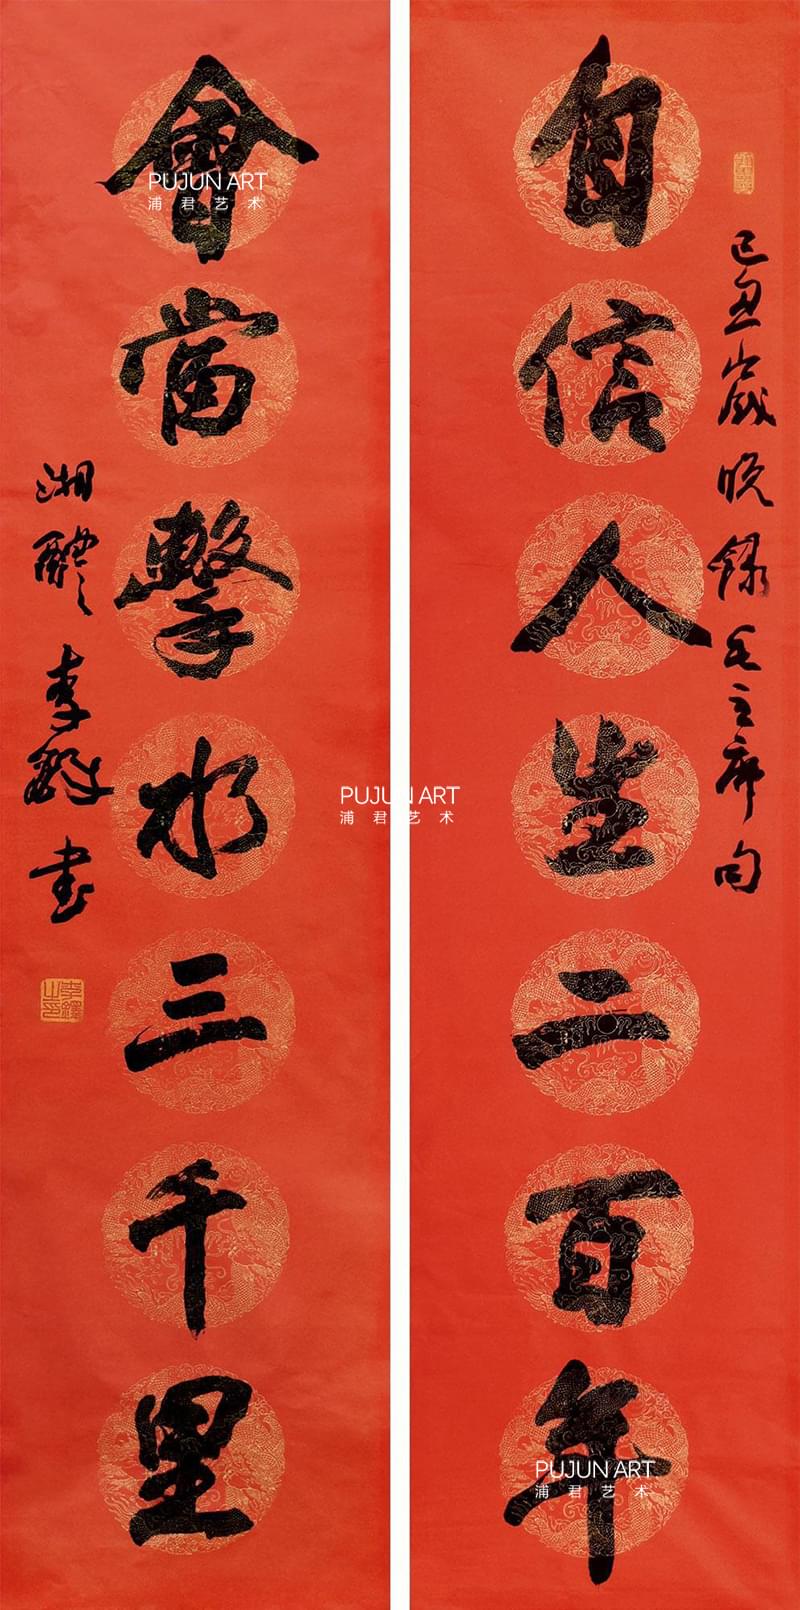 己丑歲晚錄毛主席句
自信人生二百年
會當擊水三千里
湘醴李鐸書
李鐸之印
PUJUN ART
浦君艺术
PUJUN ART
浦君艺术
PUJUN ART
浦君艺术